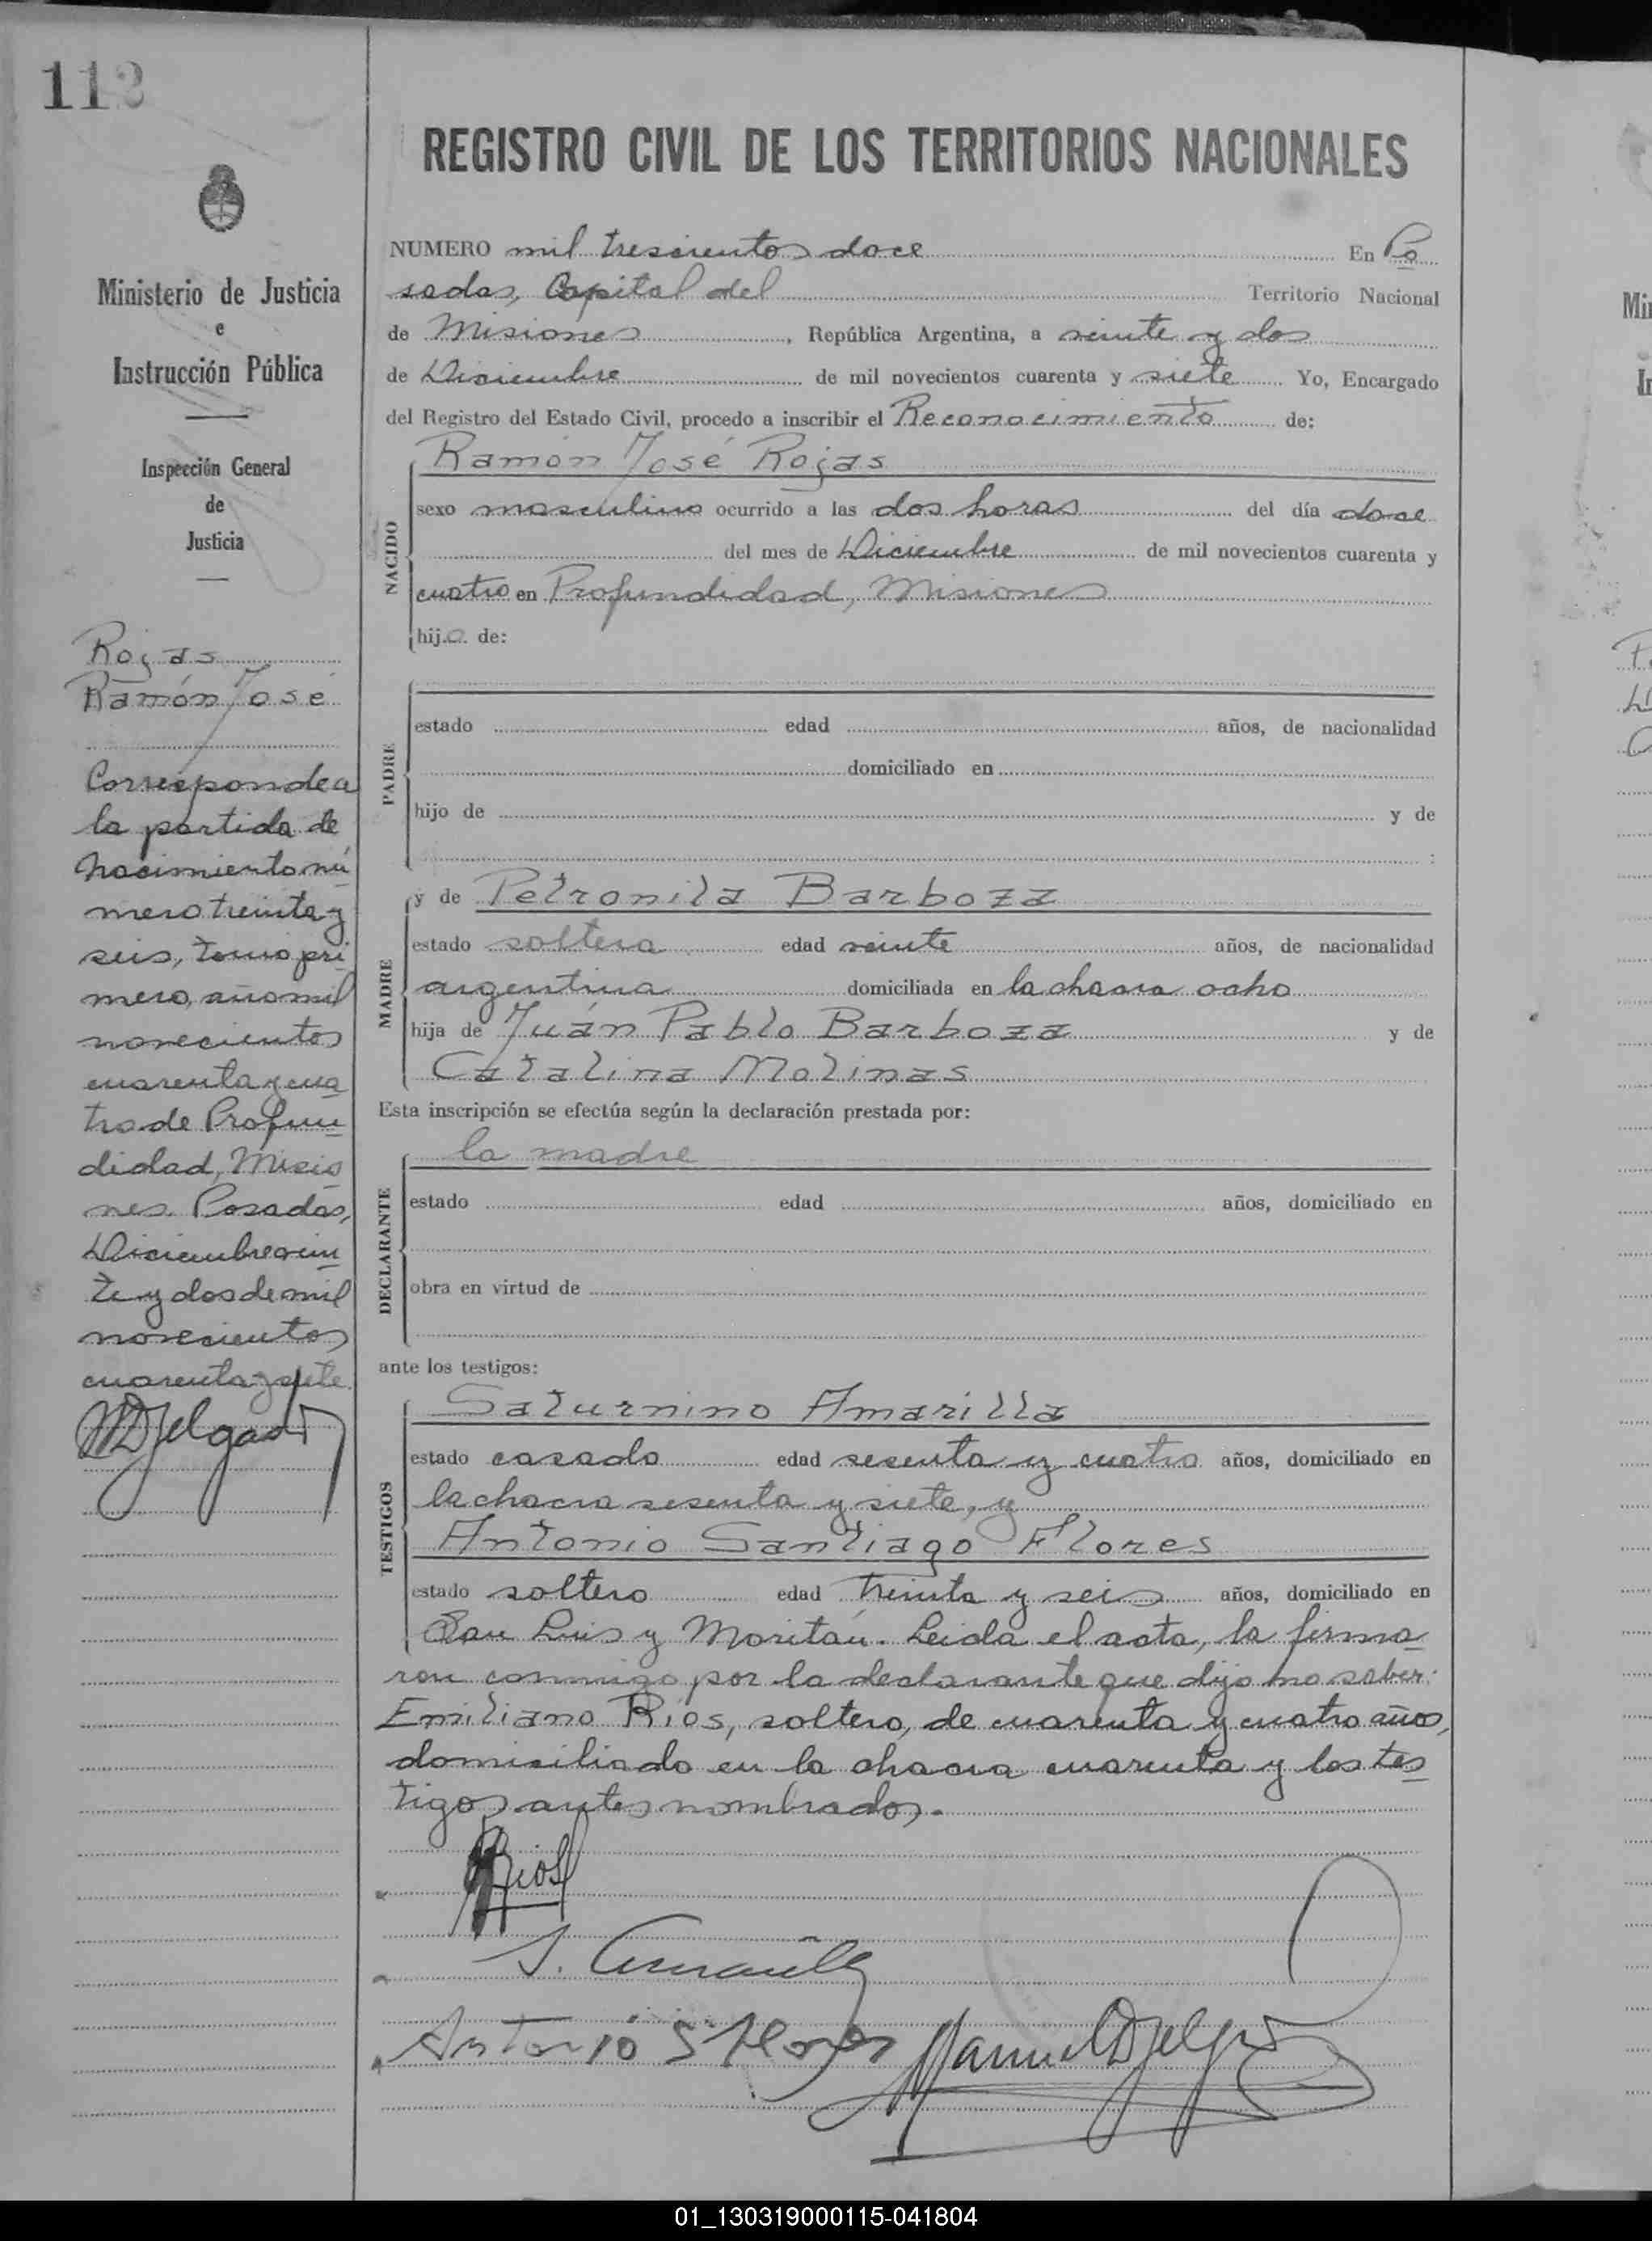 112
REGISTRO CIVIL DE LOS TERRITORIOS NACIONALES
Ministerio de Justicia
e
Instrucción Pública
Inspección General
de
Justicia
Rojas
Ramón José
Corresponde a
la partida de
Nacimiento nú
mero treinta y
seis, tomo pri
mero, año mil
novecientos
cuarenta y cua
tro de Profun
didad, Misio
nes. Posadas,
Diciembre vein
te y dos de mil
novecientos
cuarenta y siete.
MDelgado
NUMERO mil trescientos doce En Po
sadas, Capital del Territorio Nacional
de Misiones, República Argentina, a veinte y dos
de Diciembre de mil novecientos cuarenta y siete Yo, Encargado
del Registro del Estado Civil, procedo a inscribir el Reconocimiento de:
NACIDO
Ramón José Rojas
sexo masculino ocurrido a las dos horas del día doce
del mes de Diciembre de mil novecientos cuarenta y
cuatro en Profundidad, Misiones
hijo de:
PADRE
estado edad años, de nacionalidad
domiciliado en
hijo de y de
MADRE
y de Petronila Barboza
estado soltera edad veinte años, de nacionalidad
argentina domiciliada en la chacra ocho
hija de Juán Pablo Barboza y de
Catalina Molinas
Esta inscripción se efectúa según la declaración prestada por:
DECLARANTE
la madre
estado edad años, domiciliado en
obra en virtud de
ante los testigos:
TESTIGOS
Saturnino Amarilla
estado casado edad sesenta y cuatro años, domiciliado en
la chacra sesenta y siete, y
Antonio Santiago Flores
estado soltero edad treinta y seis años, domiciliado en
San Luis y Moritán. Leida el acta, la firma
ron conmigo por la declarante que dijo no saber:
Emiliano Ríos, soltero, de cuarenta y cuatro años,
domiciliado en la chacra cuarenta y los tes
tigos antes nombrados.
Rios
S. Amarilla
Antonio S Flores Manuel Delgado
01_130319000115-041804